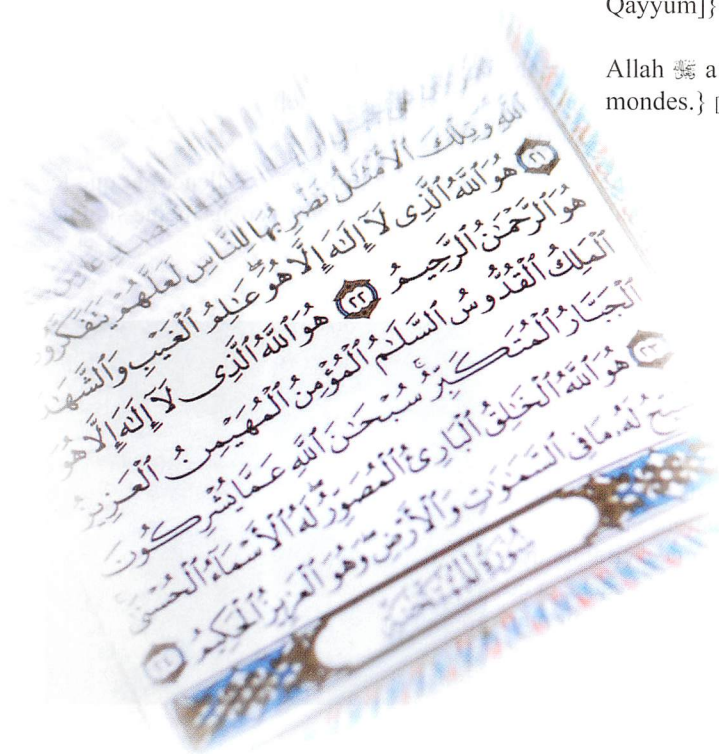 Qayyum]}
Allah ﷻ a
mondes.} [
ٱللَّهِ وَتِلْكَ ٱلْأَمْثَٰلُ نَضْرِبُهَا لِلنَّاسِ لَعَلَّهُمْ يَتَفَكَّرُو
٢١ هُوَ ٱللَّهُ ٱلَّذِى لَآ إِلَٰهَ إِلَّا هُوَ ۖ عَٰلِمُ ٱلْغَيْبِ وَٱلشَّهَٰ
هُوَ ٱلرَّحْمَٰنُ ٱلرَّحِيمُ ٢٢ هُوَ ٱللَّهُ ٱلَّذِى لَآ إِلَٰهَ إِلَّا هُوَ
ٱلْمَلِكُ ٱلْقُدُّوسُ ٱلسَّلَٰمُ ٱلْمُؤْمِنُ ٱلْمُهَيْمِنُ ٱلْعَزِيزُ
ٱلْجَبَّارُ ٱلْمُتَكَبِّرُ ۚ سُبْحَٰنَ ٱللَّهِ عَمَّا يُشْرِكُونَ
٢٣ هُوَ ٱللَّهُ ٱلْخَٰلِقُ ٱلْبَارِئُ ٱلْمُصَوِّرُ ۖ لَهُ ٱلْأَسْمَآءُ ٱلْحُسْنَىٰ ۚ
بِّحُ لَهُۥ مَا فِى ٱلسَّمَٰوَٰتِ وَٱلْأَرْضِ ۖ وَهُوَ ٱلْعَزِيزُ ٱلْحَكِيمُ ٢٤
سُورَةُ ٱلْمُمْتَحَنَةِ